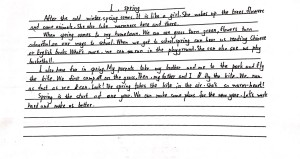 1. spring
After the cold winter, spring comes. It is like a girl. She wakes up the trees, flowers
and some animals. She also take warmness here and there.
When spring comes to my hometown. We can see grass turn green, flowers turn
colourful on our ways to school. When we get to school, spring can hear us reading Chinese
or English books. What's more, we can run in the playground. She can also see us play
basketball.
I also have fun in spring. My parents take my brother and me to the park and fly
the kite. We first camp at on the grass. Then, my father and I fly the kite. We run
as fast as we can. Look! The spring takes the kite in the air. She's so warm-heart!
Spring is the start of one year. We can make some plans for the new year. Let's work
hard and make us better.